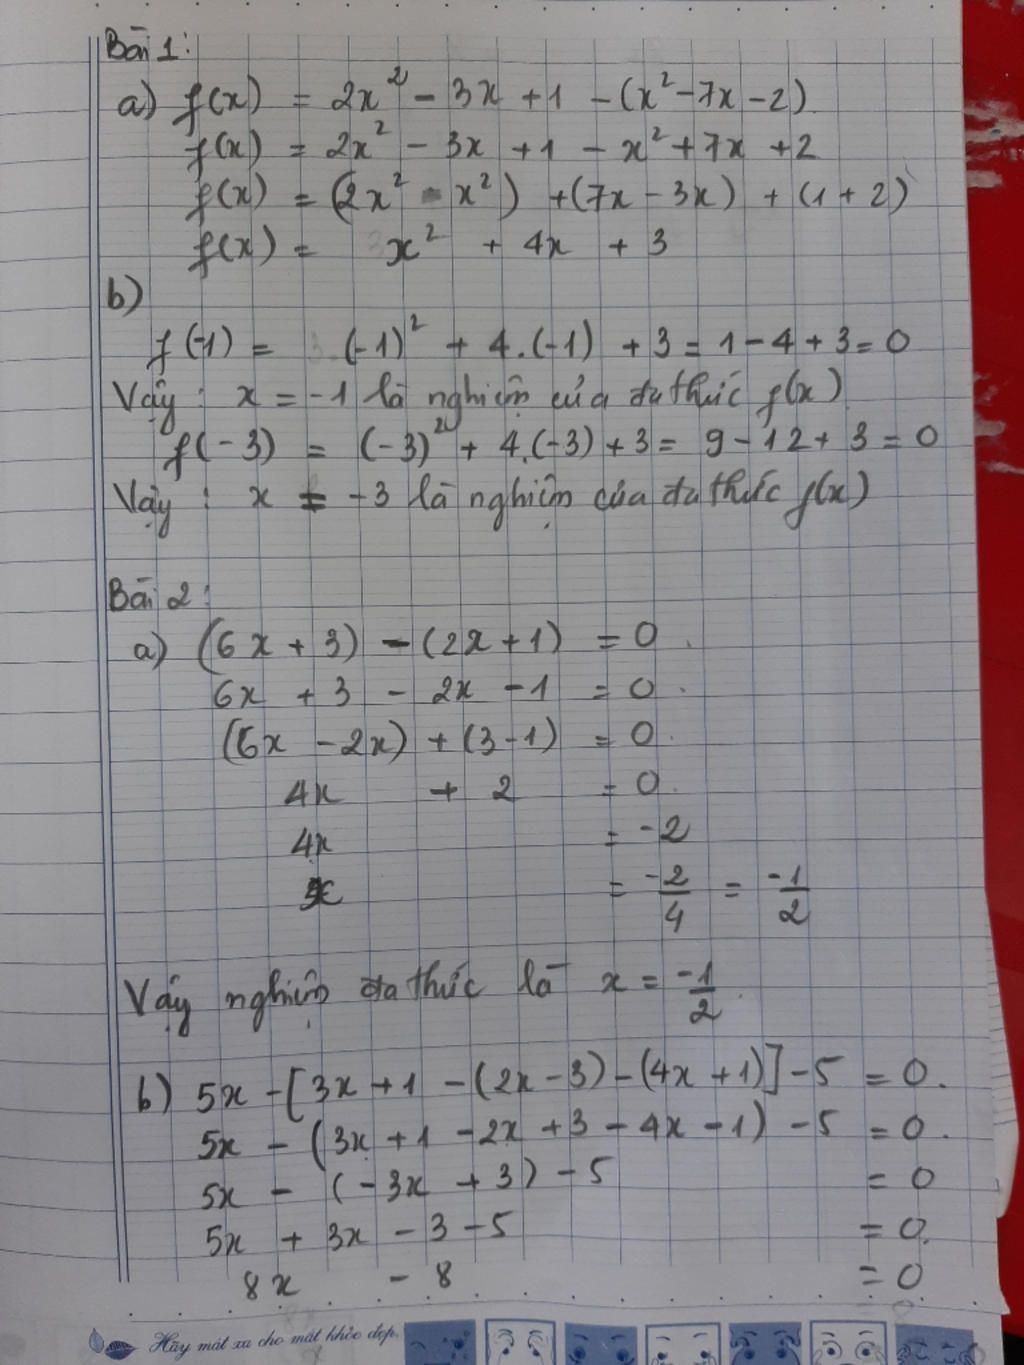 Bài 1:
a) f(x) = 2x² - 3x + 1 - (x² - 7x - 2)
f(x) = 2x² - 3x + 1 - x² + 7x + 2
f(x) = (2x² - x²) + (7x - 3x) + (1 + 2)
f(x) = x² + 4x + 3
b)
f(-1) = (-1)² + 4.(-1) + 3 = 1 - 4 + 3 = 0
Vậy : x = -1 là nghiệm của đa thức f(x)
f(-3) = (-3)² + 4.(-3) + 3 = 9 - 12 + 3 = 0
Vậy : x = -3 là nghiệm của đa thức f(x)
Bài 2:
a) (6x + 3) - (2x + 1) = 0.
6x + 3 - 2x - 1 = 0.
(6x - 2x) + (3 - 1) = 0.
4x + 2 = 0.
4x = -2
x = -2/4 = -1/2
Vậy nghiệm đa thức là x = -1/2.
b) 5x - [3x + 1 - (2x - 3) - (4x + 1)] - 5 = 0.
5x - (3x + 1 - 2x + 3 - 4x - 1) - 5 = 0.
5x - (-3x + 3) - 5 = 0
5x + 3x - 3 - 5 = 0.
8x - 8 = 0
Hãy mát xa cho mắt khỏe đẹp.